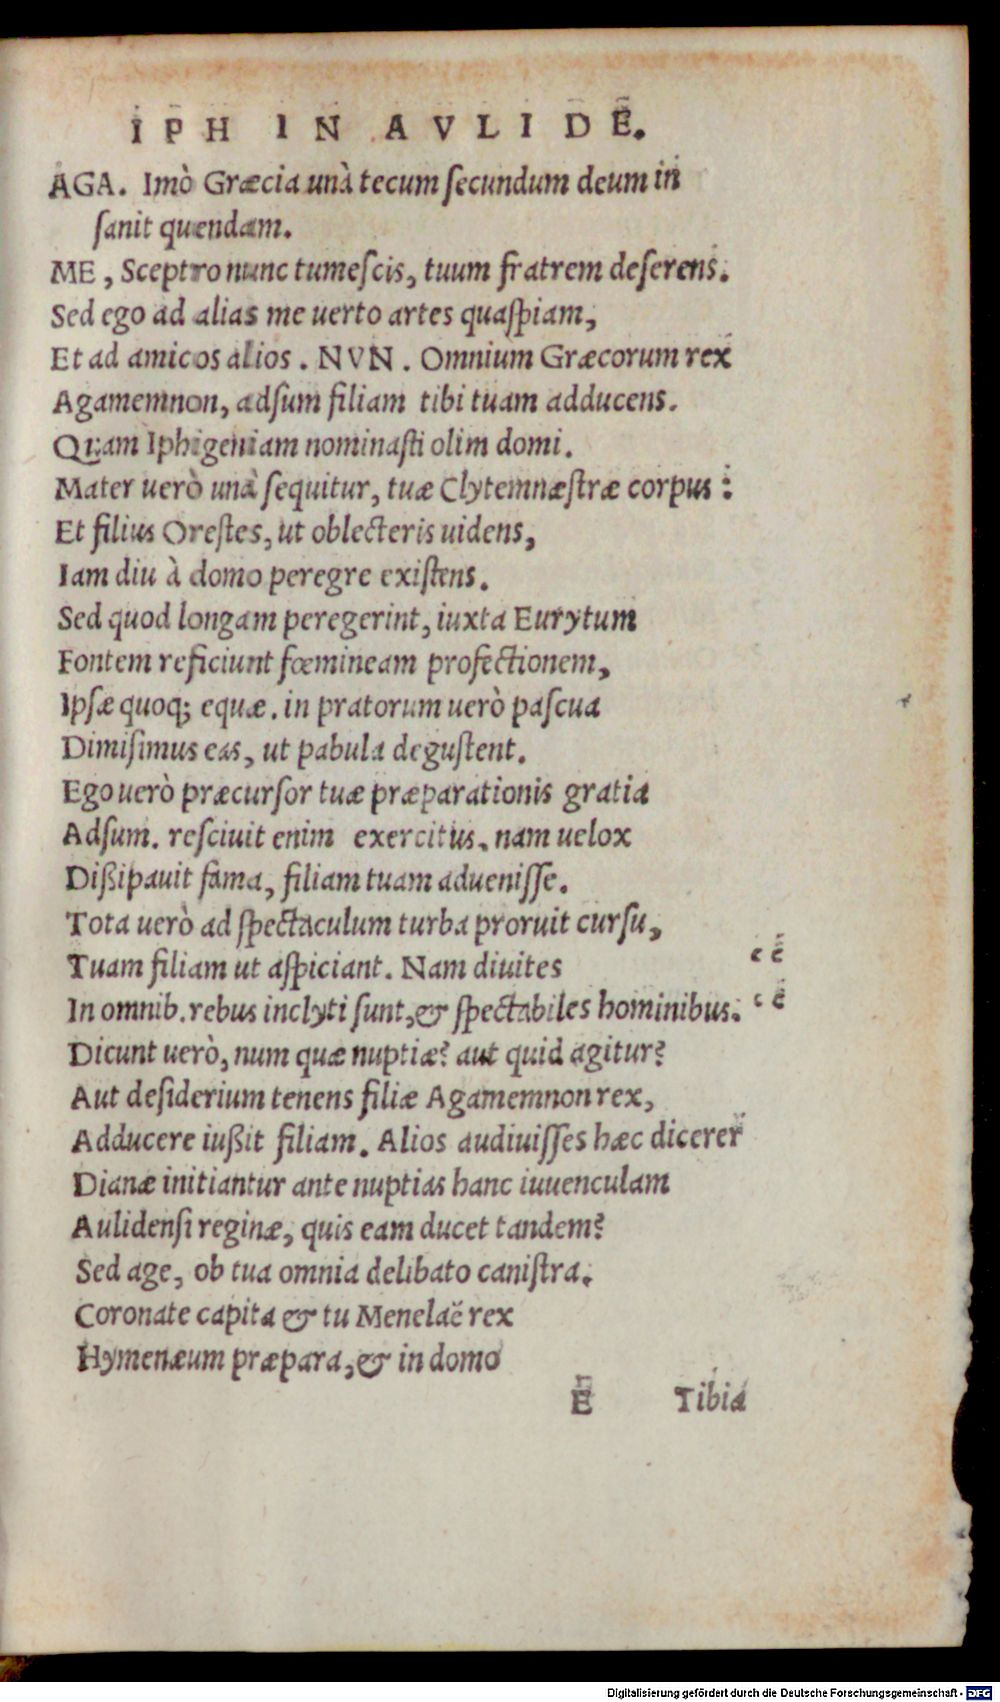 IPH IN AVLIDE.
AGA. Imò Græcia unà tecum ſecundum deum in
ſanit quendam.
ME, Sceptro nunc tumeſcis, tuum fratrem deſerens.
Sed ego ad alias me uerto artes quaſpiam,
Et ad amicos alios. NVN. Omnium Græcorum rex
Agamemnon, adſum filiam tibi tuam adducens.
Quam Iphigeniam nominaſti olim domi.
Mater uerò unà ſequitur, tuæ Clytemnæſtræ corpus:
Et filius Oreſtes, ut oblecteris uidens,
Iam diu à domo peregre exiſtens.
Sed quod longam peregerint, iuxta Eurytum
Fontem reficiunt fœmineam profectionem,
Ipſæ quoq; equæ. in pratorum uerò paſcua
Dimiſimus eas, ut pabula deguſtent.
Ego uerò præcurſor tuæ præparationis gratia
Adſum. reſciuit enim exercitus. nam uelox
Dißipauit fama, filiam tuam adueniſſe.
Tota uerò ad ſpectaculum turba proruit curſu,
Tuam filiam ut aſpiciant. Nam diuites
In omnib. rebus inclyti ſunt, & ſpectabiles hominibus.
Dicunt uerò, num quæ nuptiæ? aut quid agitur?
Aut deſiderium tenens filiæ Agamemnon rex,
Adducere iußit filiam. Alios audiuiſſes hæc dicere
Dianæ initiantur ante nuptias hanc iuuenculam
Aulidenſi reginæ, quis eam ducet tandem?
Sed age, ob tua omnia delibato caniſtra.
Coronate capita & tu Menelaë rex
Hymenæum præpara, & in domo
E Tibia
Digitalisierung gefördert durch die Deutsche Forschungsgemeinschaft - DFG